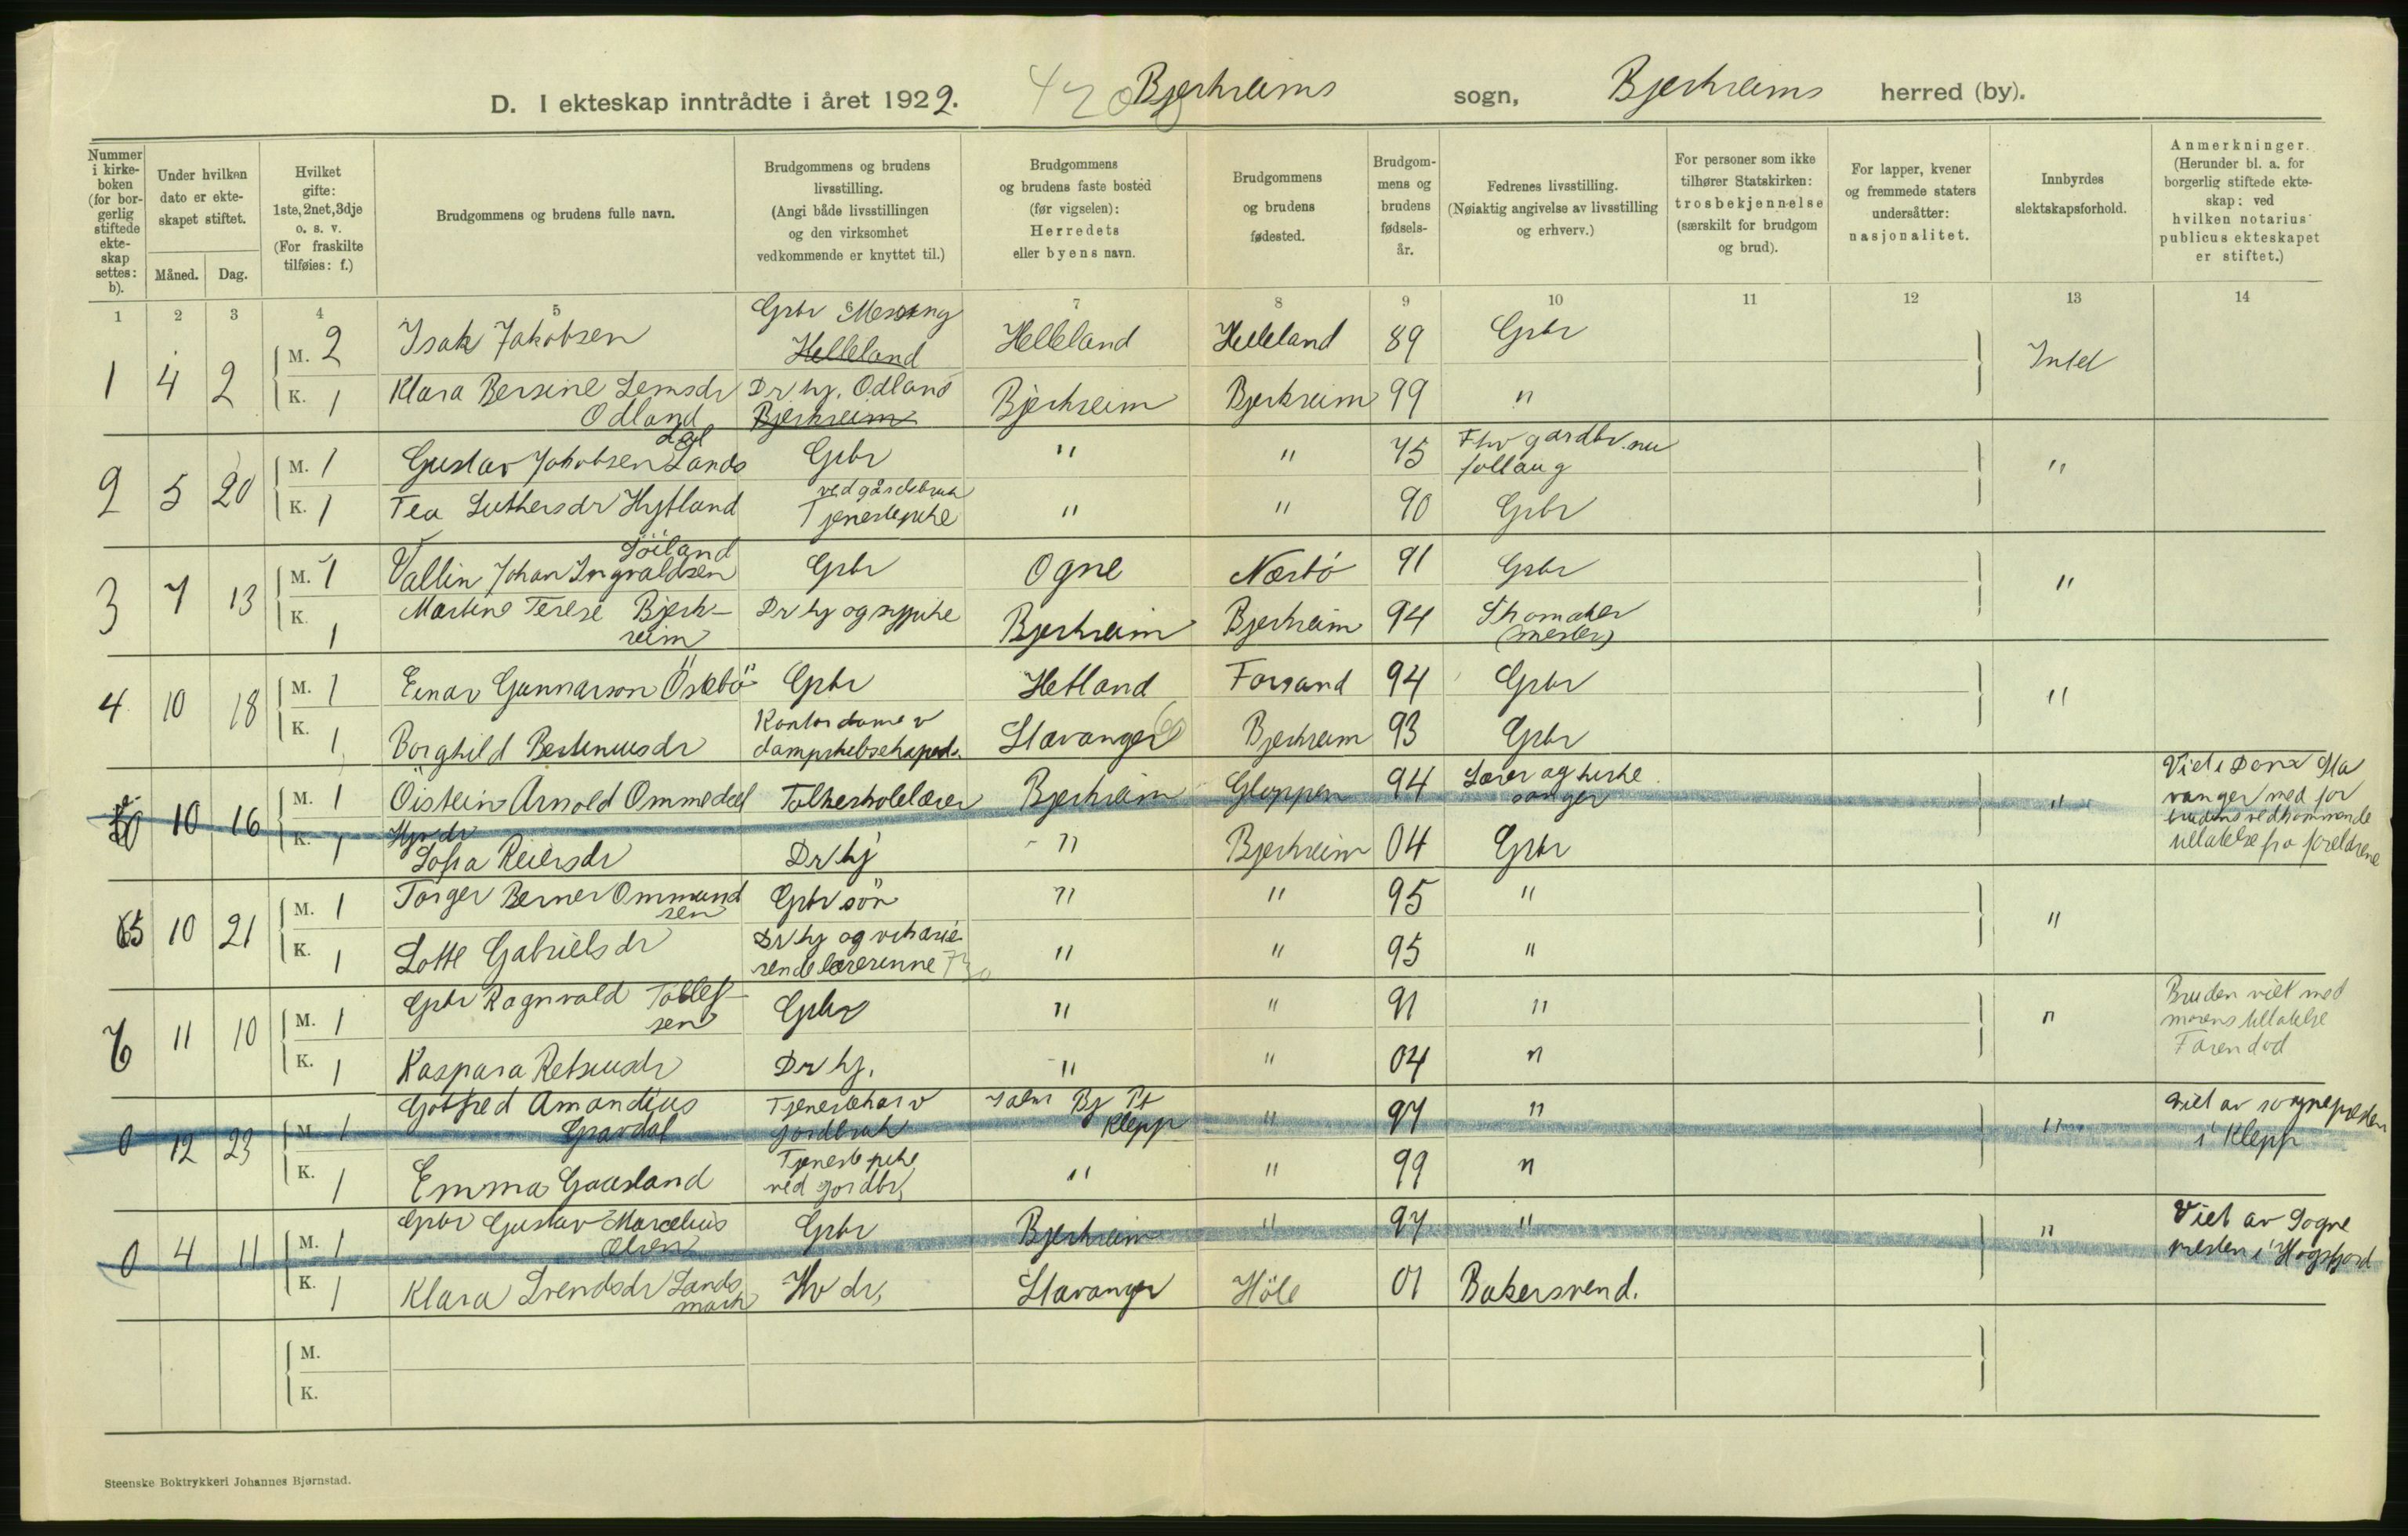 D. I ekteskap inntrådte i året 1922. Bjerkreims sogn, Bjerkreims herred (by).
Nummer i kirke-boken (for bor-gerlig stiftede ekte-skap settes: b).
Under hvilken dato er ekte-skapet stiftet.
Måned. Dag.
Hvilket gifte: 1ste, 2net, 3dje o. s. v. (For fraskilte tilføies: f.)
Brudgommens og brudens fulle navn.
Brudgommens og brudens livsstilling. (Angi både livsstillingen og den virksomhet vedkommende er knyttet til.)
Brudgommens og brudens faste bosted (før vigselen): Herredets eller byens navn.
Brudgommens og brudens fødested.
Brudgom-mens og brudens fødsels-år.
Fedrenes livsstilling. (Nøiaktig angivelse av livsstilling og erhverv.)
For personer som ikke tilhører Statskirken: trosbekjennelse (særskilt for brudgom og brud).
For lapper, kvener og fremmede staters undersåtter: nasjonalitet.
Innbyrdes slektskapsforhold.
Anmerkninger. (Herunder bl. a. for borgerlig stiftede ekte-skap: ved hvilken notarius publicus ekteskapet er stiftet.)
1 2 3 4 5 6 7 8 9 10 11 12 13 14
1 4 2 M. 2 Isak Jakobsen Grbr Helleland Helleland Helleland 89 Grbr Intet
K. 1 Klara Bersine Lemsdr Odland Dr hj. Odland Bjerkreim Bjerkreim Bjerkreim 99 "
2 5 20 M. 1 Gustav Jakobsen Landsdal Grbr " " 75 Fhv gardbr. nu follaug "
K. 1 Tea Luthersdr Hytland Tjenestepike ved gårdsbruk " " 90 Grbr
3 7 13 M. 1 Vallin Johan Ingvaldsen Söiland Grbr Ogne Nærbö 91 Grbr "
K. 1 Martine Terese Bjerk-reim Dr hj og sypike Bjerkreim Bjerkreim 94 Skomaker (mester)
4 10 18 M. 1 Einar Gunnarson Öskbö Grbr Hetland Forsand 94 Grbr "
K. 1 Borghild Bertinusdr Kontordame v dampskibseksped. Stavanger Bjerkreim 93 Grbr
0 10 16 M. 1 Öistein Arnold Ommedal Folkeskolelærer Bjerkreim Gloppen 94 Lærer og kirke sanger " Viet i Domk Sta vanger med for brudens vedkommende tillatelse fra foreldrene
K. 1 Sofia Reiersdr Dr hj " Bjerkreim 04 Grbr
5 10 21 M. 1 Torger Berner Ommund sen Grbr sön " " 95 " "
K. 1 Lotte Gabrielsdr Dr hj og vikarie rende lærerinne " " 95 "
6 11 10 M. 1 Grbr Ragnvald Tollef-sen Grbr " " 91 " " Bruden viet med morens tillatelse Faren död
K. 1 Kaspara Retseusdr Dr hj. " " 04 "
0 12 23 M. 1 Gotfred Amandius Gravdal Tjenestekar v jordbruk Bj Pt Klepp " 97 " " Viet av sognepresten i Klepp
K. 1 Emma Gausland Tjenestepike ved jordbr. " " 99 "
0 4 11 M. 1 Grbr Gustav Marcelius Olsen Grbr Bjerkreim " 97 " " Viet av Sogne presten i Högsfjord
K. 1 Klara Svendsdr Sands mark Hv dr, Stavanger Höle 01 Bakersvend.
M.
K.
Steenske Boktrykkeri Johannes Bjørnstad.